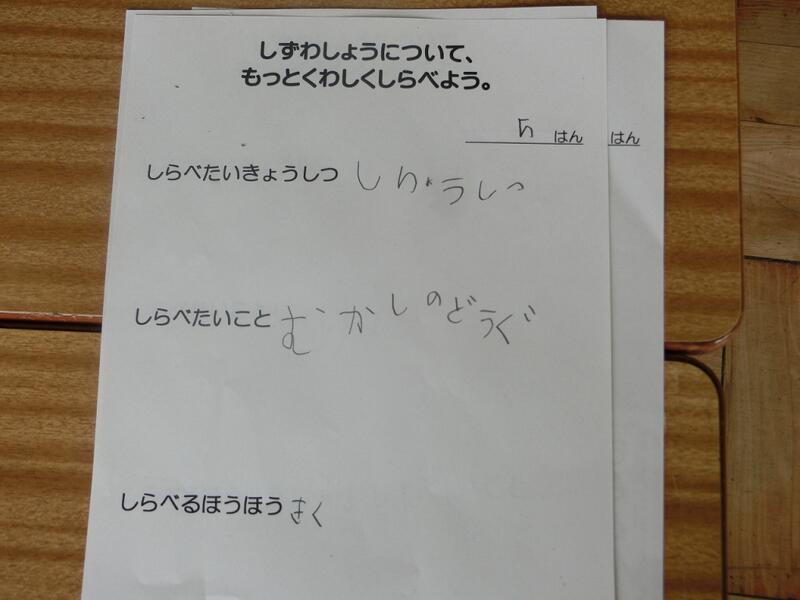 しずわしょうについて、
もっとくわしくしらべよう。
5 はん はん
しらべたいきょうしつ しりょうしつ
しらべたいこと むかしのどうぐ
しらべるほうほう きく